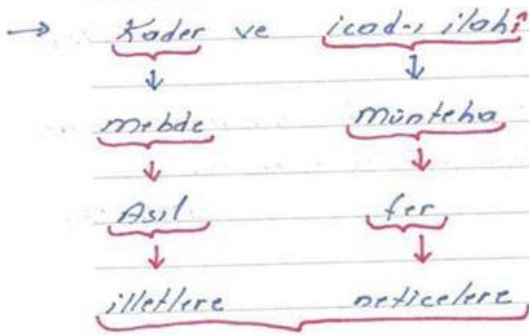 → Kader ve icad-ı ilahî
↓ ↓
mebde münteha
↓ ↓
Asıl fer
↓ ↓
illetlere neticelere